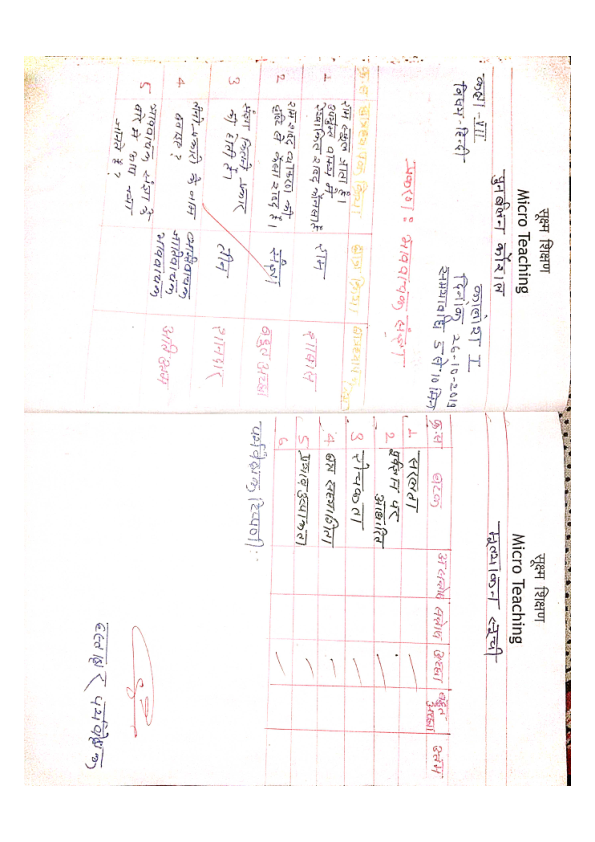 सूक्ष्म शिक्षण
Micro Teaching
पुनर्बलन कौशल
कक्षा - VIII
विषय - हिन्दी
कालांश I
दिनांक 26-10-2019
समयावधि 5 से 10 मिनट
प्रकरण : भाववाचक संज्ञा
क्र.सं छात्राध्यापक क्रिया छात्र क्रिया
1 राम स्कूल जाता है।
उपर्युक्त वाक्य में
रेखांकित शब्द कौनसा है
राम
शाबाश
2 राम शब्द व्याकरण की
दृष्टि से कैसा शब्द है।
संज्ञा
बहुत अच्छा
3 संज्ञा कितने प्रकार
की होती है।
तीन
शानदार
4 तीनों प्रकारों के नाम
बताइए?
व्यक्तिवाचक
जातिवाचक
भाववाचक
अति उत्तम
5 भाववाचक संज्ञा के
बारे में आप क्या
जानते हैं?
सूक्ष्म शिक्षण
Micro Teaching
मूल्यांकन सूची
क्र.स घटक सन्तोष अच्छा बहुत अच्छा उत्तम
1 सरलता
2 पूर्वज्ञान पर
आधारित
3 रोचकता
4 छात्र सहभागिता
5 प्रभावोत्पादकता
6
पर्यवेक्षक टिप्पणी :-
हस्ताक्षर पर्यवेक्षक